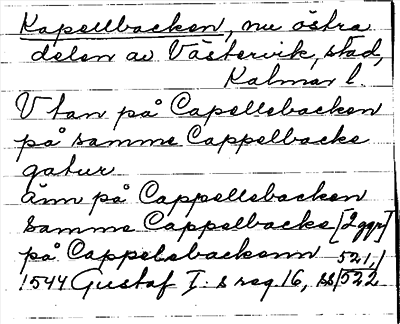 Kapellbacken, nu östra
delen av Västervik, stad,
Kalmar l.
Vtan på Capellebacken
på samme Cappelbacke
gatur
änn på Cappellebacken
samme Cappelbacke [2 ggr]
på Cappelebackenn 521,
1544 Gustaf I:s reg. 16, ss 522